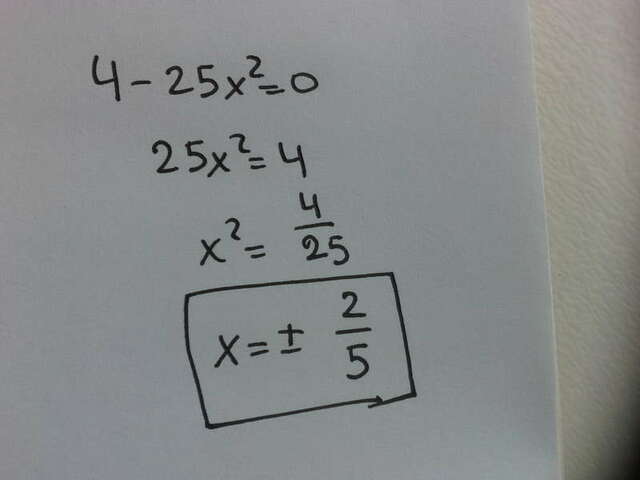 4 - 25x² = 0
25x² = 4
x² = 4/25
x = ± 2/5